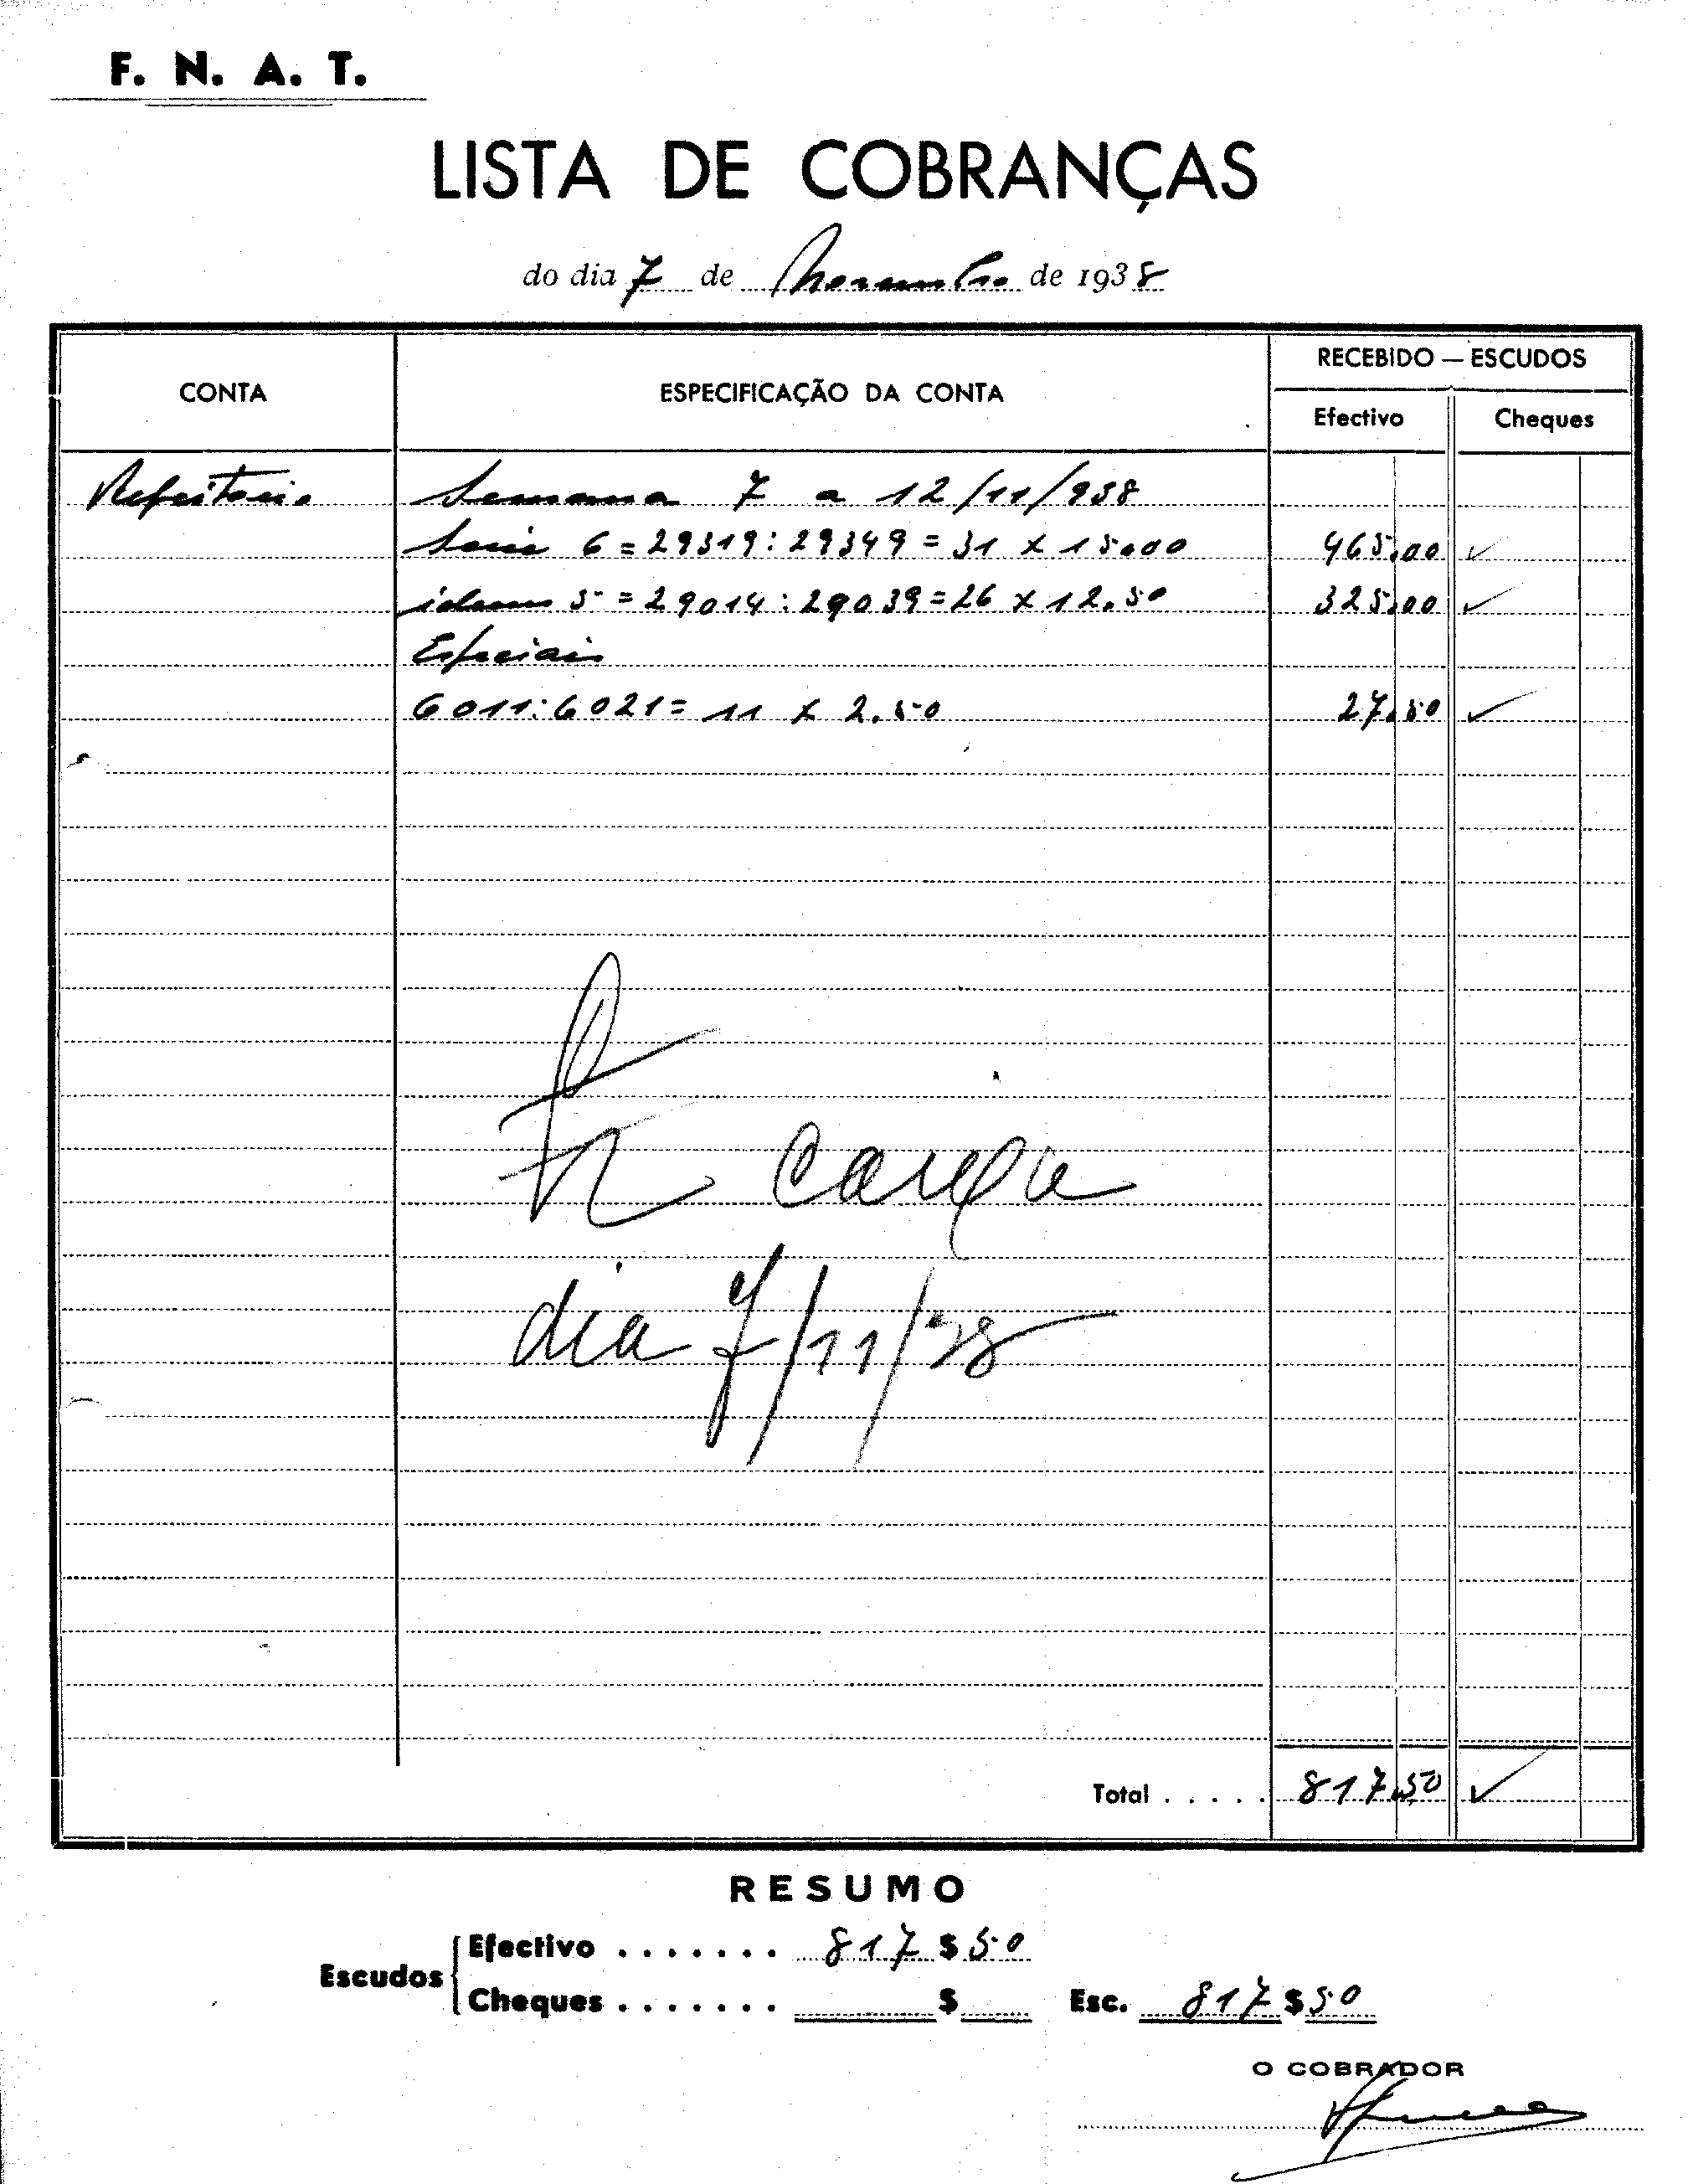 F. N. A. T.
LISTA DE COBRANÇAS
do dia 7 de Novembro de 1938
CONTA
ESPECIFICAÇÃO DA CONTA
RECEBIDO — ESCUDOS
Efectivo
Cheques
Refeitorio Semana 7 a 12/11/938
Serie 6 = 29319 : 29349 = 31 x 15.00 465,00
idem 5 = 29014 : 29039 = 26 x 12.50 325,00
Especiais
6011 : 6021 = 11 x 2.50 27,50
caixa
dia 7/11/38
Total . . . . . 817,50
RESUMO
Escudos
Efectivo . . . . . . . 817 $ 50
Cheques . . . . . . . $ Esc. 817 $ 50
O COBRADOR